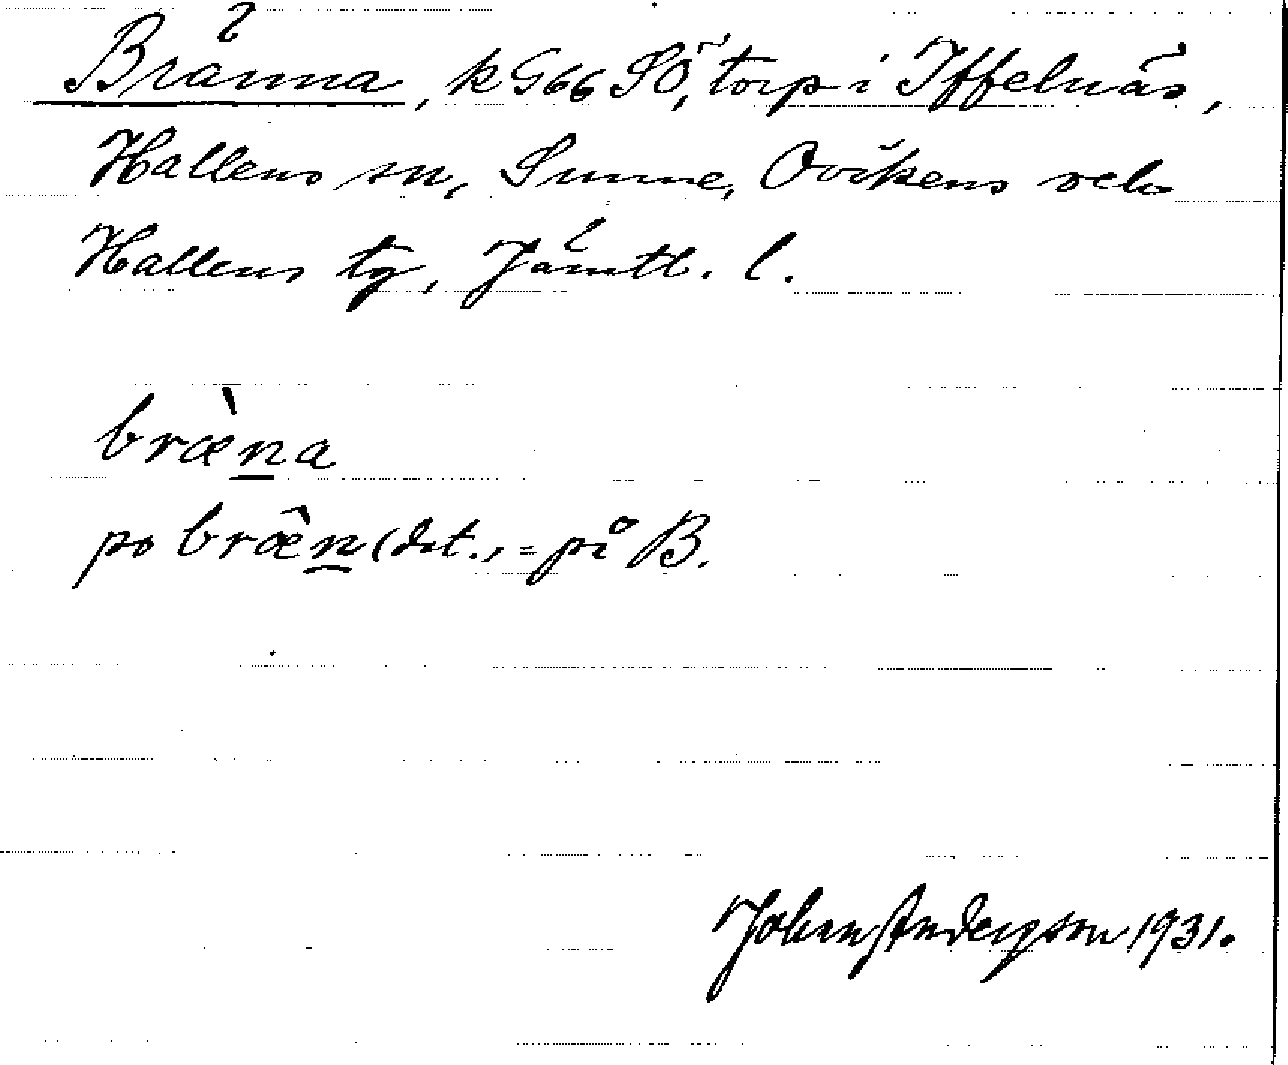 Bränna, k G66 SÖ, torp i Iffelnäs,
Hallens sn, Sunne, Ovikens och
Hallens tg, Jämtl. l.
bræ̀na
po bræ̂n (dat., = på B.
Johan Anderson 1931.